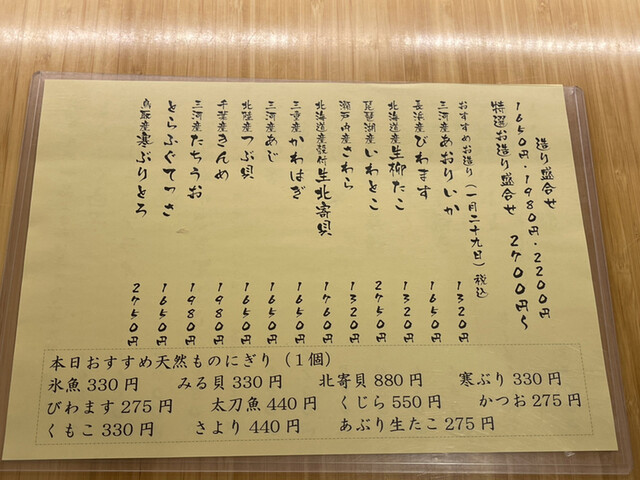 造り盛合せ
1650円・1980円・2200円
特選お造り盛合せ 2700円〜
おすすめお造り(一月二十九日)税込
三河産あおりいか 1320円
長浜産びわます 1650円
北海道産生柳たこ 1320円
琵琶湖産いわとこ 2750円
瀬戸内産さわら 1320円
北海道産殻付生北寄貝 1760円
三重産かわはぎ 1650円
三河産あじ 1650円
北陸産つぶ貝 1650円
千葉産きんめ 1980円
三河産たちうお 1980円
とらふぐてっさ 1650円
鳥取産寒ぶりとろ 2750円
本日おすすめ天然ものにぎり(1個)
氷魚330円 みる貝330円 北寄貝880円 寒ぶり330円
びわます275円 太刀魚440円 くじら550円 かつお275円
くもこ330円 さより440円 あぶり生たこ275円